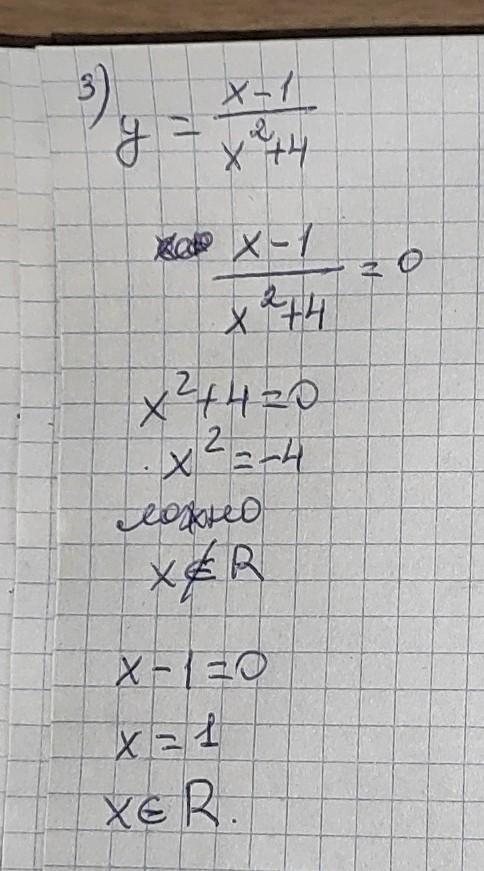 3) y = \frac{x-1}{x^2+4}
\frac{x-1}{x^2+4} = 0
x^2+4=0
x^2=-4
ложно
x∉R
x-1=0
x=1
x∈R.